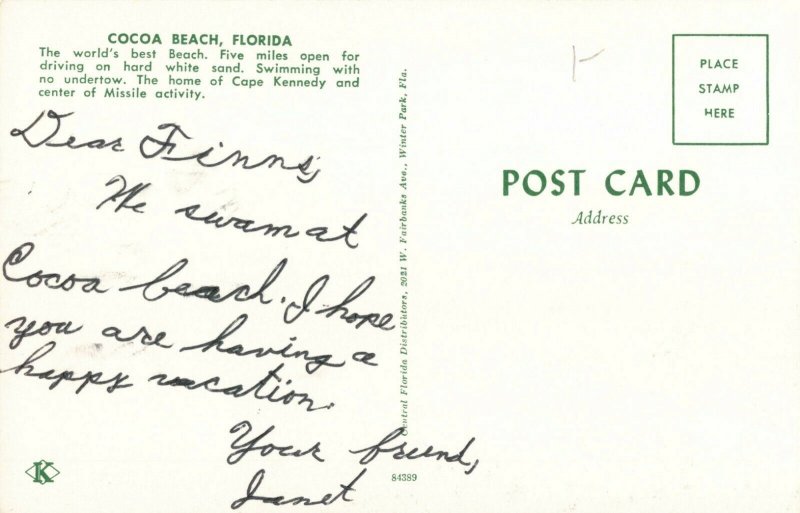 COCOA BEACH, FLORIDA
The world's best Beach. Five miles open for
driving on hard white sand. Swimming with
no undertow. The home of Cape Kennedy and
center of Missile activity.
Dear Finns,
We swam at
Cocoa beach. I hope
you are having a
happy vacation.
Your freind,
Janet
K
84389
Central Florida Distributors, 2021 W. Fairbanks Ave., Winter Park, Fla.
PLACE
STAMP
HERE
POST CARD
Address